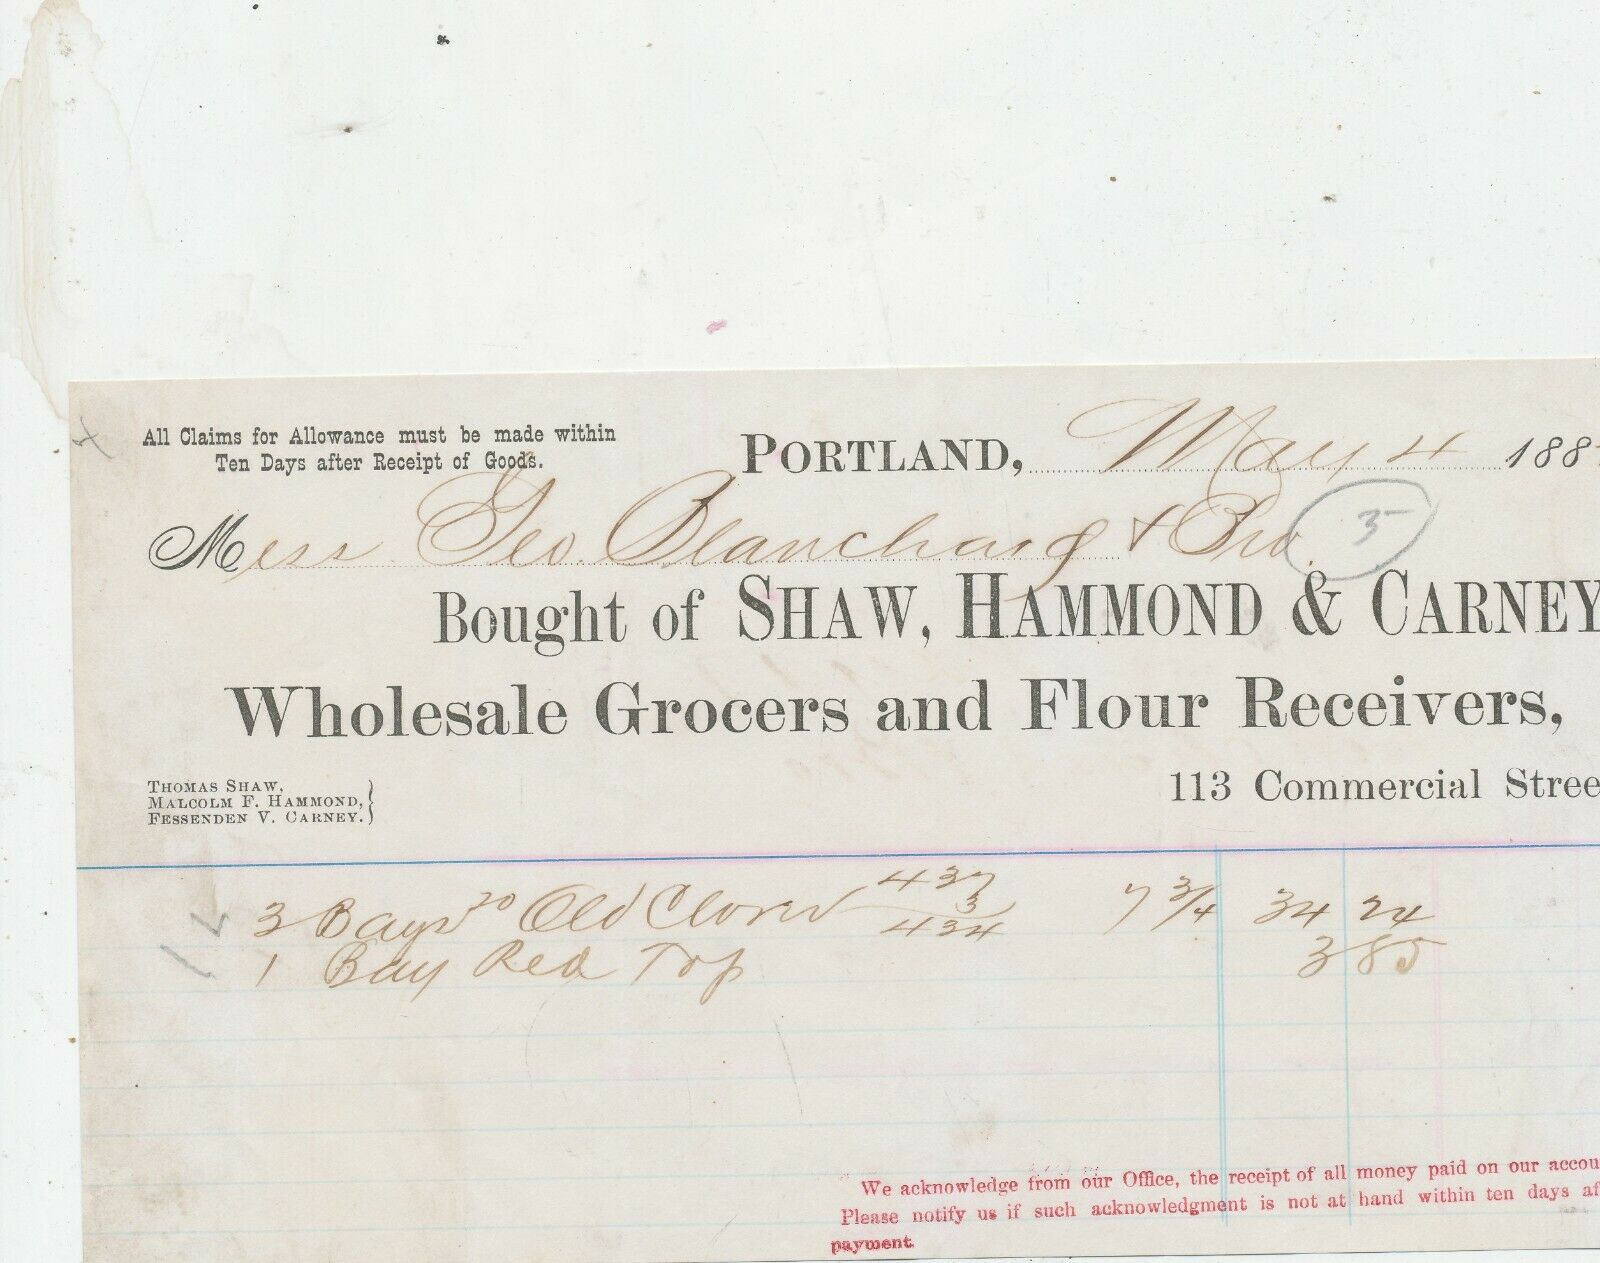 All Claims for Allowance must be made within
Ten Days after Receipt of Goods.
PORTLAND, May 4 188
Mess Geo. Blanchard & Bro. 3
Bought of SHAW, HAMMOND & CARNEY
Wholesale Grocers and Flour Receivers,
THOMAS SHAW,
MALCOLM F. HAMMOND,
FESSENDEN V. CARNEY.
113 Commercial Stree
437
3
3 Bags 20 Old Clover 434 7 3/4 34 24
1 Bag Red Top 3 85
We acknowledge from our Office, the receipt of all money paid on our accou
Please notify us if such acknowledgment is not at hand within ten days af
payment.